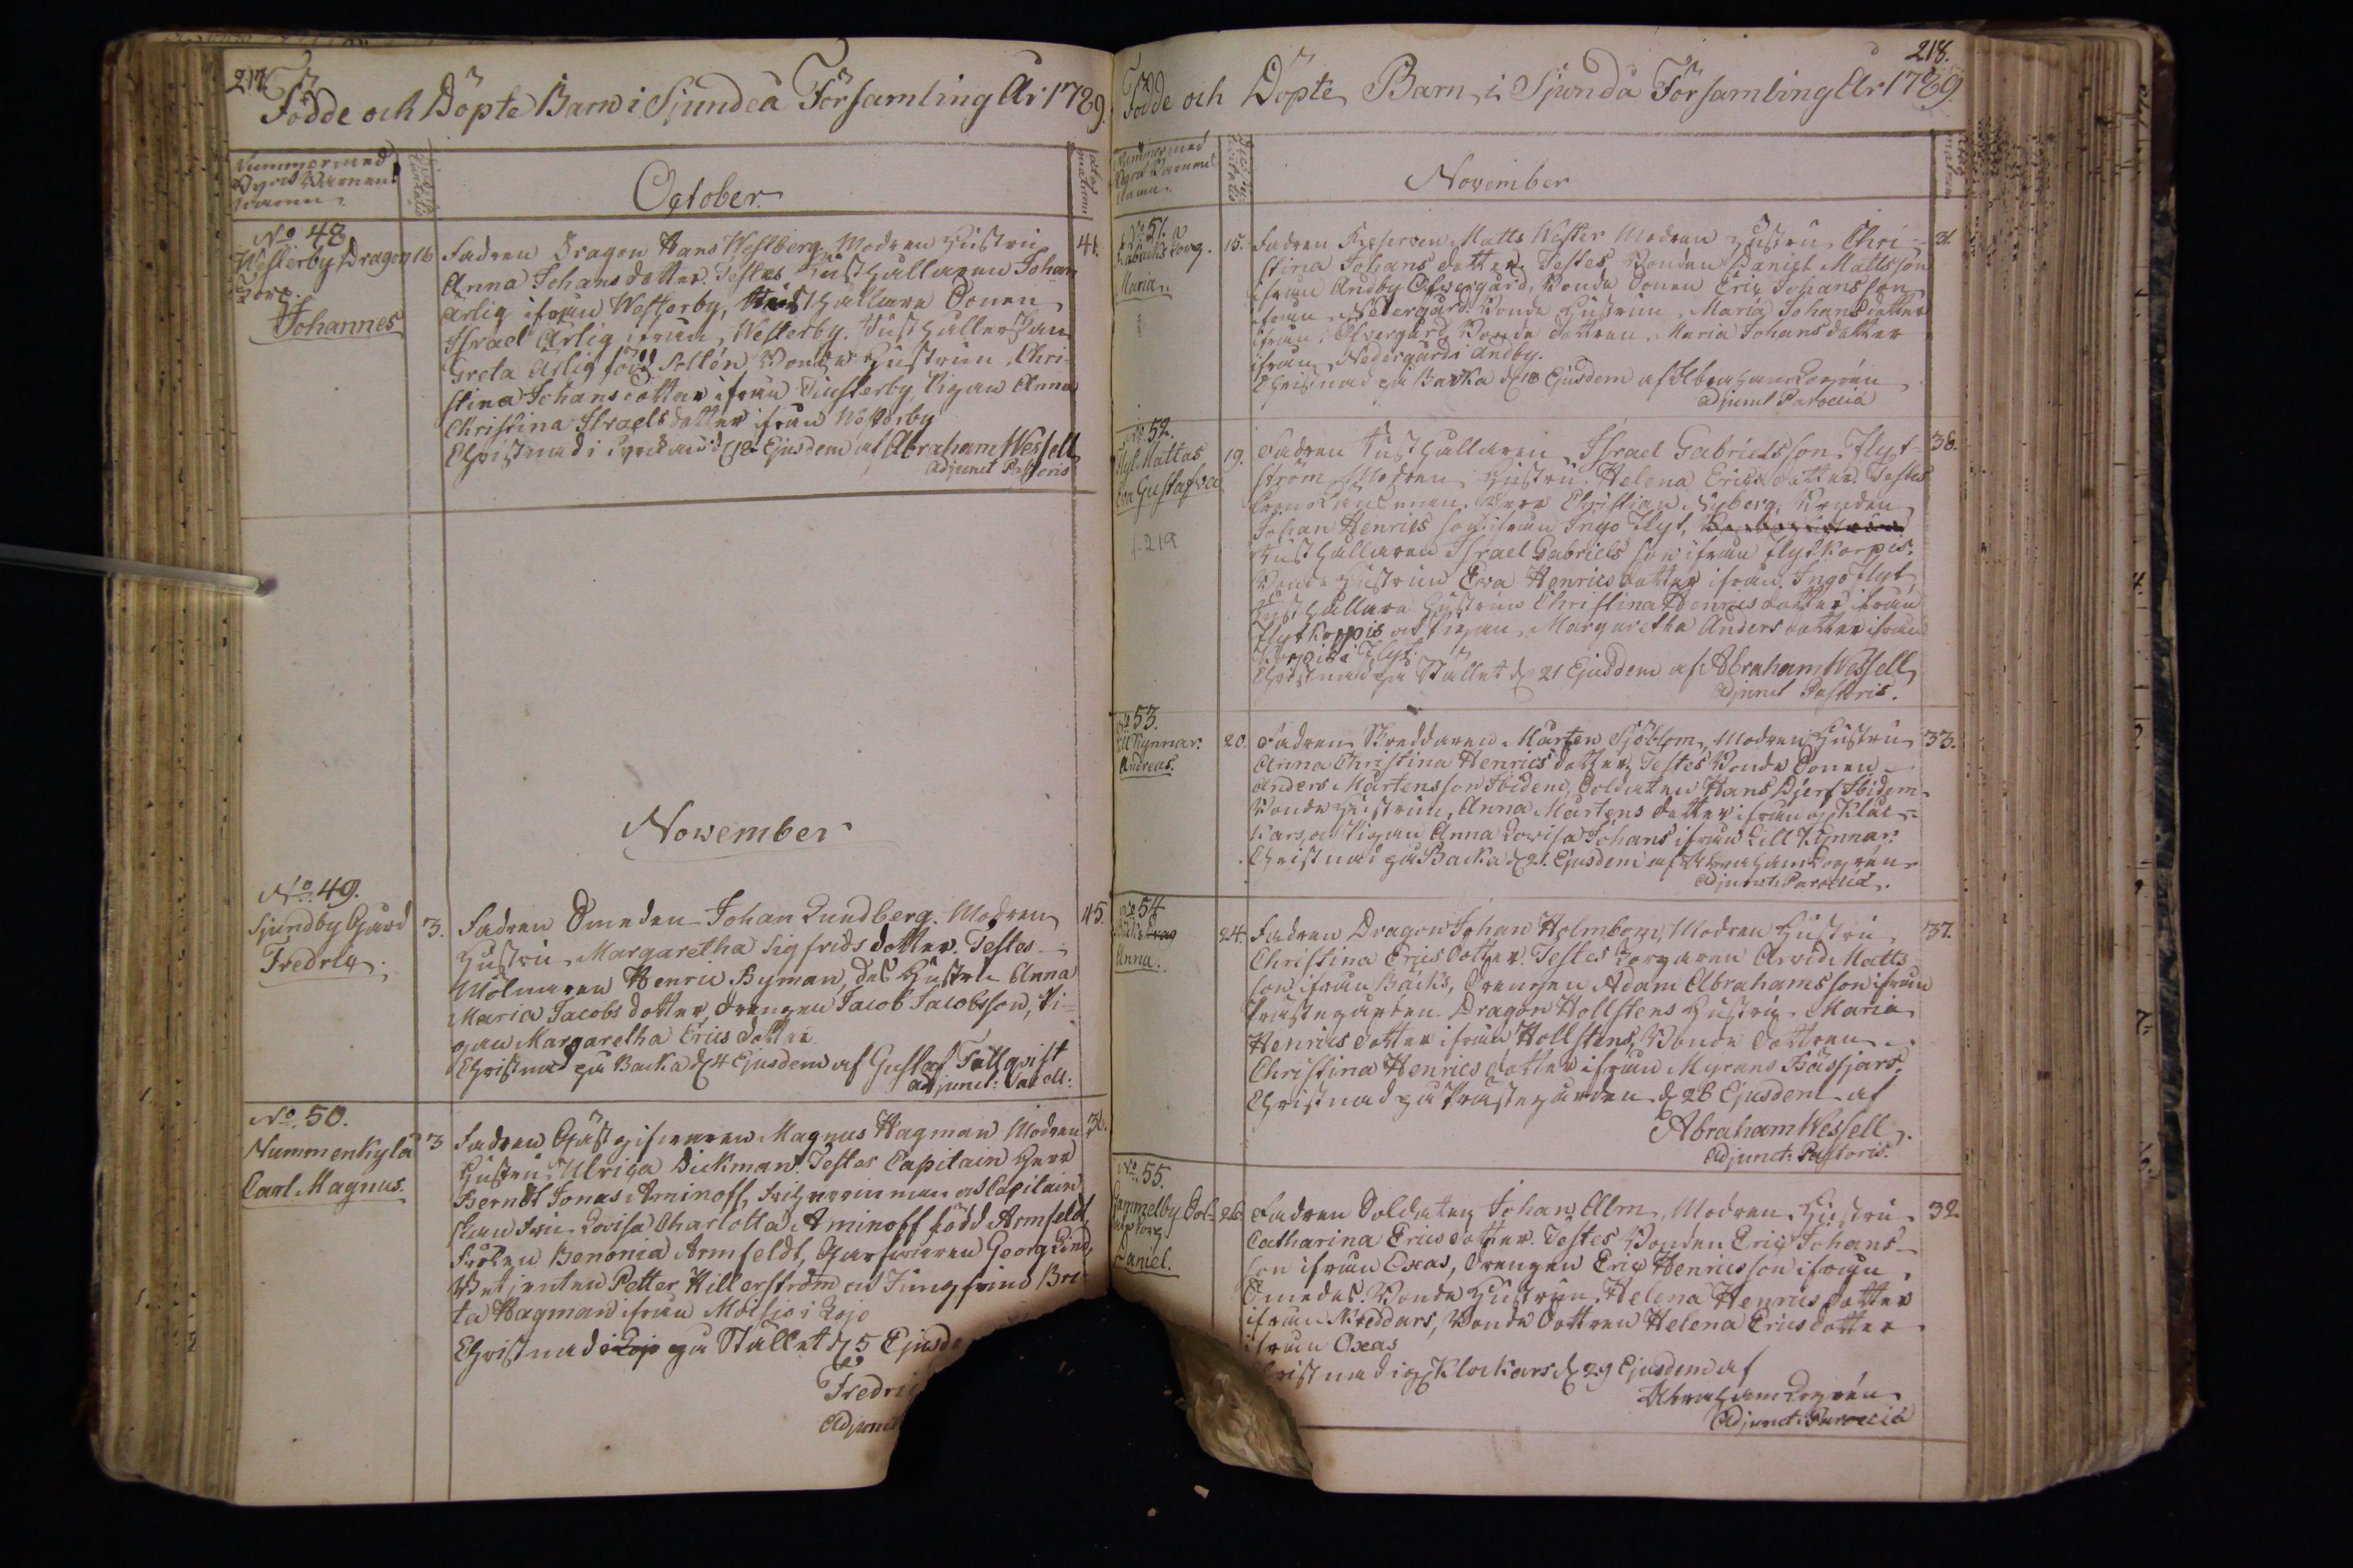 217.
Födde och Döpte Barn i Sjundeå Församling År 1789.
October.
No 48
Westerby Dragon
Torp.
Johannes
16
Fadren Dragon Hans Westberg Modren Hustru
41.
Anna Johansdotter. Testes Rusthållaren Johan
Ärlig ifrån Westerby, Rusthållare Sonen
Israel Ärlig ifrån Westerby. Rusthållerskan
Greta Ärlig född Sellén, Bonde Hustrun Chri-
stina Johansdotter ifrån Purterby, Pigan Anna
Christina Israelsdotter ifrån Westerby
Christnad i Kyrkan d 18 Ejusdem af Abraham Wessell
Adjunct Pastoris
November
No 49.
Sjundby Gård
Fredric.
3.
Fadren Smeden Johan Lundberg. Modren
45.
Hustru Margaretha Sigfridsdotter. Testes
Mölnaren Henric Byman, des Hustru Anna
Maria Jacobsdotter, drengen Jacob Jacobsson, Pi-
gan Margaretha Ericsdotter
Christnad på Backa d 4 Ejusdem af Gustaf Fallqvist
adjunct: Sacell:
No. 50.
Nummenkylä
Carl Magnus.
3
Fadren Gästgifvaren Magnus Hagman Modren
36.
Hustru Ulrica Dickman. Testes Capitain Herr
Berndt Jonas Aminoff, och Capitain
skan Fru Lovisa Charlotta Aminoff född Armfeldt,
Fröken Benonia Armfeldt, Garfvaren Georg Lind,
Betjenten Petter Hillerström och Jungfrun Bri-
ta Hagman ifrån Moisio i Lojo
Christnad på Stället d 5 Ejusde
Fredri
Adjunct
218.
Födde och Döpte Barn i Sjundå Församling År 1789.
November
No 51.
Maria.
15.
Fadren Matts Wester Modren Hustru Chri-
31.
stina Johansdotter. Testes Bonden Daniel Mattsson
ifrån Andby Öfvergård, Bonde Sonen Eric Johansson
ifrån Nedergård. Bonde Hustrun Maria Johansdotter
ifrån Öfvergård, Bonde dottren Maria Johansdotter
ifrån Nedergård i Andby.
Christnad på Backa d 18 Ejusdem af Abraham Logrén
adjunct Paroecia
No 52.
Flyt Mattas
Eva Gustafva
f. 219
19.
Fadren Rusthållaren Israel Gabrielsson Flyt-
38.
ström Modren Hustru Helena Ericsdotter. Testes
Länsman Herr Christian Nyberg, Bonden
Johan Henricsson ifrån Ingo Flyt,
Rusthållaren Israel Gabrielsson ifrån Flyt Korpis.
Bonde Hustrun Eva Henricsdotter ifrån Ingo Flyt
Rusthållare Hustrun Christina Henricsdotter ifrån
Flyt Korpis och Pigan Margaretha Andersdotter ifrån
Korpis i Flyt.
Christnad på Stället d 21 Ejusdem af Abraham Wessell
adjunct Pastoris.
No 53.
Lill Kynnar.
Andreas.
20.
Fadren Skreddaren Mårten Sjöblom, Modren Hustru
33.
Anna Christina Henricsdotter. Testes Bonde Sonen
Anders Mårtensson Ibidem, Soldaten Hans Djerf Ibidem
Bonde Hustrun Anna Mårtensdotter ifrån Kloc-
kars, och Pigan Anna Lovisa Johans ifrån Lill Kynnar.
Christnad på Backa d 21. Ejusdem af Abraham Logrén
adjunct: Paroecia.
No 54
Anna.
24.
Fadren Dragon Johan Holmbom, Modren Hustru
37.
Christina Ericsdotter. Testes Torparen Arvid Matts-
son ifrån Bäcks, Drengen Adam Abrahamsson ifrån
Prästegården. Dragon Hollstens Hustru Maria
Henricsdotter ifrån Hollstens, Bonde dottren
Christina Henricsdotter ifrån Myrans Bäsfjars.
Christnad på Prästegården d 26 Ejusdem af
Abraham Wessell.
Adjunct: Pastoris.
No. 55.
Gammelby Sol-
Daniel.
26.
Fadren Soldaten Johan Alm, Modren Hustru
32.
Catharina Ericsdotter. Testes Bonden Eric Johans-
son ifrån Oxas, Drengen Eric Henricsson ifrån
Smedas. Bonde Hustrun Helena Henricsdotter
ifrån Skreddars, Bonde Dottren Helena Ericsdotter
ifrån Oxas
Christnad i Klockars d 29 Ejusdem af
Abraham Logrén
Adjunct. Paroecia